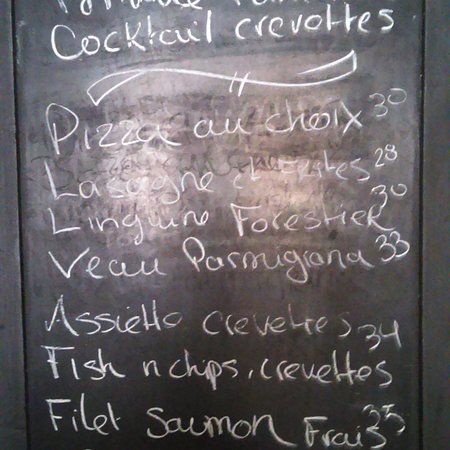 Cocktail crevettes
Pizza au choix 30
Lasagne et frites 28
Linguine Forestier 30
Veau Parmugiana 33
Assiette crevettes 34
Fish n chips, crevettes
Filet Saumon Frais 35